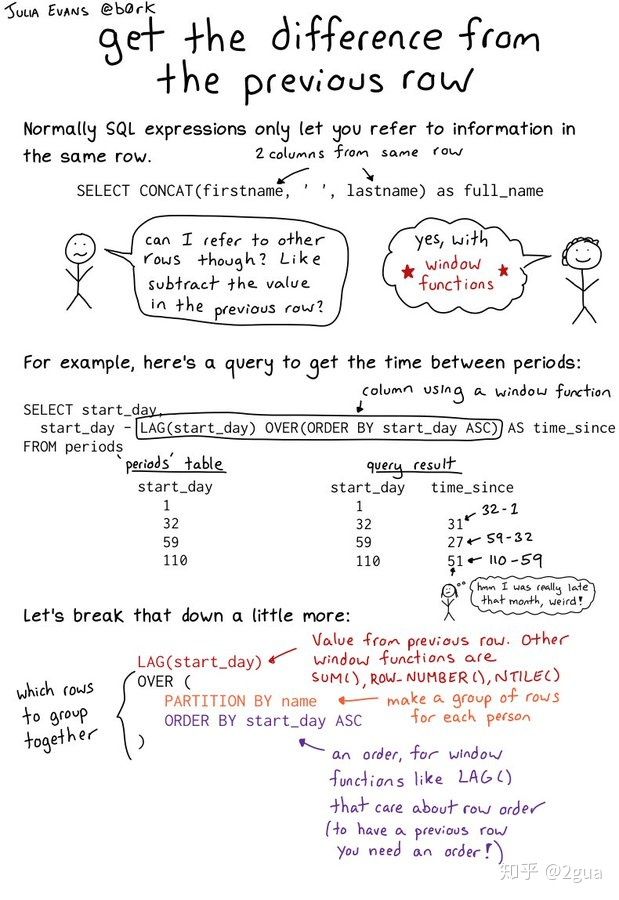 JULIA EVANS @b0rk
get the difference from
the previous row
Normally SQL expressions only let you refer to information in
the same row.
2 columns from same row
SELECT CONCAT(firstname, ' ', lastname) as full_name
can I refer to other
rows though? Like
subtract the value
in the previous row?
yes, with
★ window ★
functions
For example, here's a query to get the time between periods:
column using a window function
SELECT start_day,
start_day - LAG(start_day) OVER(ORDER BY start_day ASC) AS time_since
FROM periods
'periods' table
start_day
1
32
59
110
query result
start_day time_since
1
32 31 ← 32-1
59 27 ← 59-32
110 51 ← 110-59
hmm I was really late
that month, weird!
Let's break that down a little more:
LAG(start_day)
Value from previous row. Other
window functions are
SUM(), ROW_NUMBER(), NTILE()
which rows
to group
together
OVER (
PARTITION BY name
make a group of rows
for each person
ORDER BY start_day ASC
)
an order, for window
functions like LAG()
that care about row order
(to have a previous row
you need an order!)
知乎 @2gua